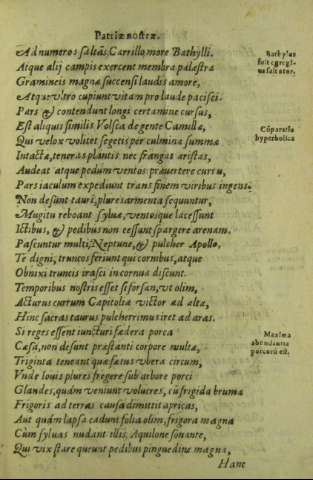 Patriæ nostræ.
Ad numeros saltās, Carrillo, more Bathylli.
Bathyllus
fuit egregi-
us saltator.
Atque alij campis exercent membra palæstra
Gramineis magnæ succensi laudis amore,
Atque vltro cupiunt vitam pro laude pacisci.
Pars & contendunt longi certamine cursus,
Est aliquis similis Volsca de gente Camillæ,
Cōparatio
hyperbolica
Qui velox volitet segetis per culmina summæ
Intactæ, teneras plantis nec frangat aristas,
Audeat atque pedum ventos præuertere cursu,
Pars iaculum expediunt trans finem viribus ingens.
Non desunt tauri, plures armenta sequuntur,
Mugitu reboant syluæ, ventosque lacessunt
Ictibus, & pedibus non cessant spargere arenam.
Pascuntur multi, Neptune, & pulcher Apollo,
Te digni, truncos feriunt qui cornibus, atque
Obnixi truncis irasci in cornua discunt.
Temporibus nostris esset si forsan, vt olim,
Acturus currum Capitolia victor ad alta,
Hinc sacras taurus pulcherrimus iret ad aras.
Si reges essent iuncturi fædera porca
Maxima
abundantia
porcorū est.
Cæsa, non desunt præstanti corpore multæ,
Triginta teneant quæ fætus vbera circum,
Vnde Iouis plures fregere sub arbore porci
Glandes, quàm veniunt volucres, cū frigida bruma
Frigoris ad terras causa dimittit apricas,
Aut quàm lapsa cadunt folia olim, frigora magna
Cùm syluas nudant illis, Aquilone sonante,
Qui vix stare queunt pedibus pinguedine magna,
Hanc